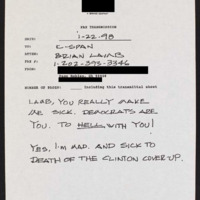 FAX TRANSMISSION
DATE: 1-22-98
TO: C-SPAN
ATTN: BRIAN LAMB
FAX#: 1-202-393-3346
FROM:
NUMBER OF PAGES: including this transmittal sheet
LAMB, YOU REALLY MAKE
ME SICK. DEMOCRATS ARE
YOU. TO HELL WITH YOU!
YES, I'M MAD. AND SICK TO
DEATH OF THE CLINTON COVER UP.